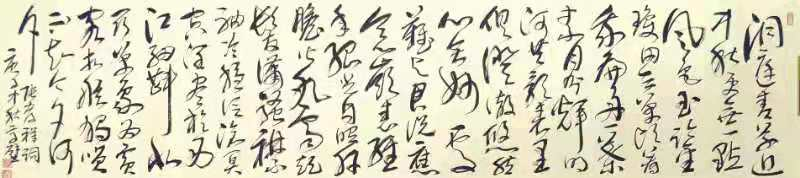 洞庭青草近
中秋更無一點
風色玉鑒
瓊田三萬頃著
我扁舟一葉
素月分輝明
河共影表里
俱澄澈悠然
心會妙處
難與君說應
念嶺表經
年孤光自照肝
膽皆冰雪短
髮蕭騷襟
袖冷穩泛滄冥
空闊盡挹西
江細斟北
斗萬象為賓
客扣舷獨嘯
不知今夕何
夕 張孝祥詞